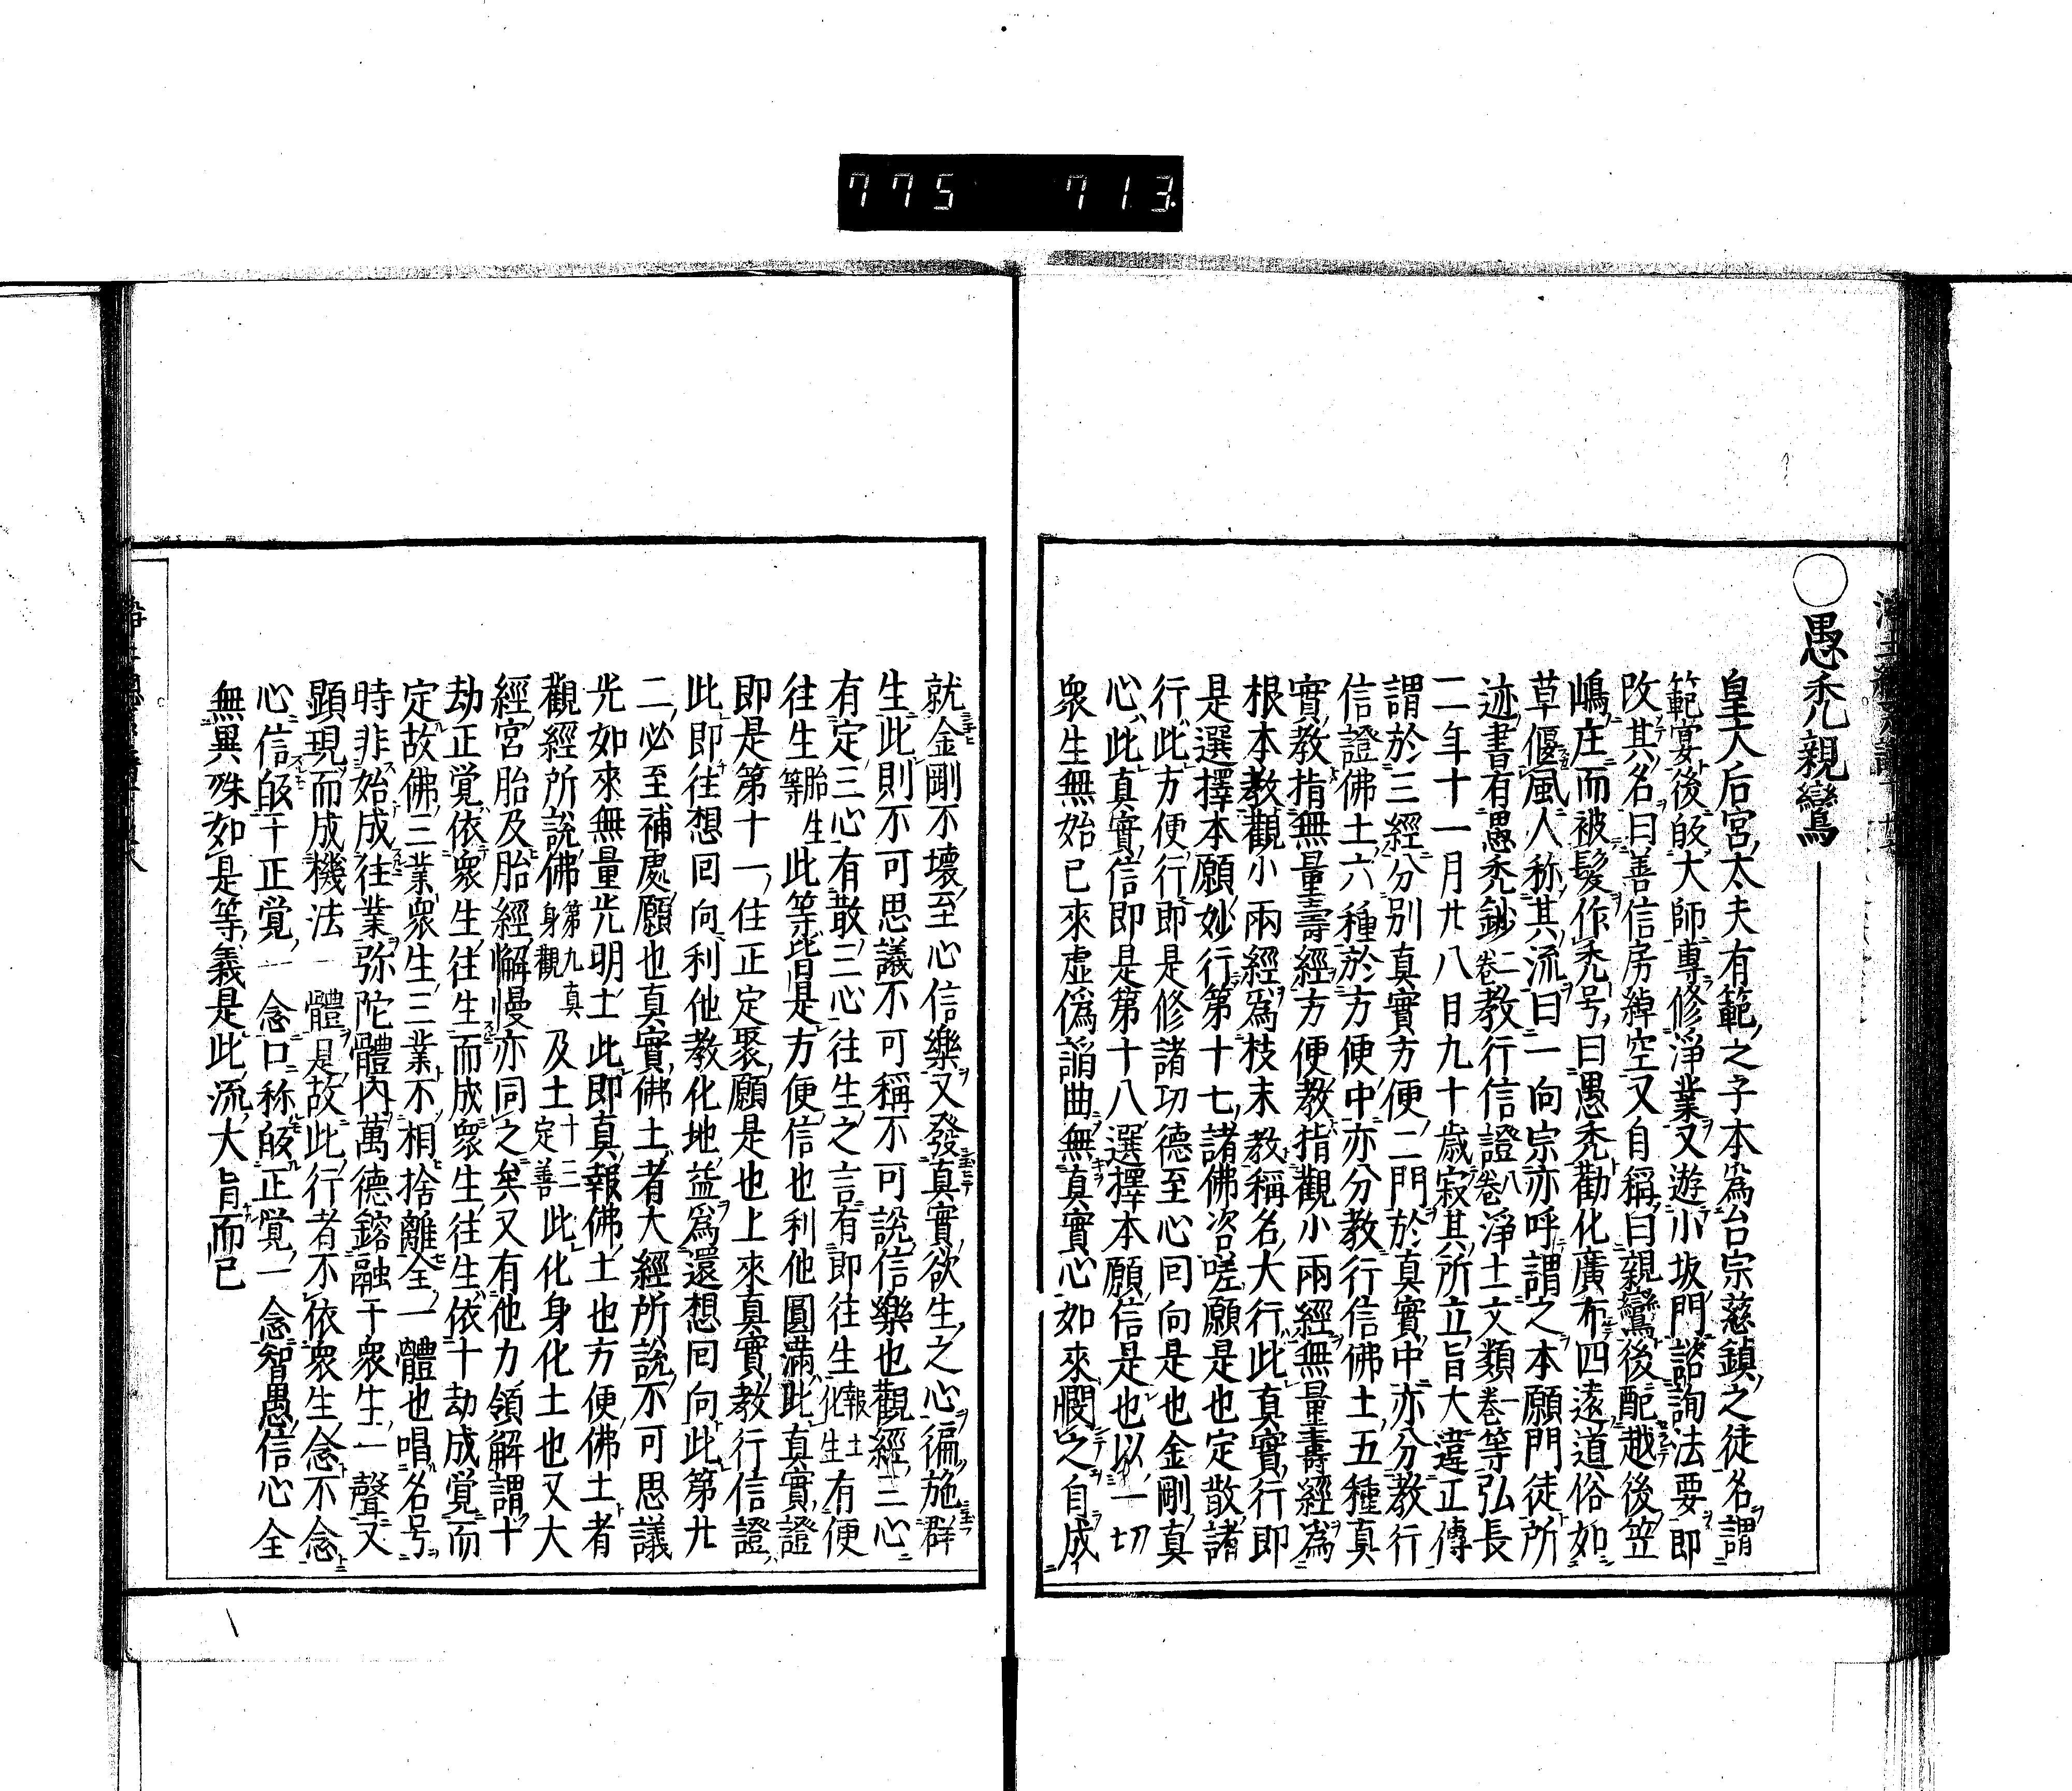 775 713
○愚禿親鸞
皇太后宮太夫有範之子本為台宗慈鎮之徒名謂
範宴後皈大師專修淨業又遊小坂門諮詢法要即
改其名曰善信房綽空又自稱曰親鸞後配越後笠
嶋庄而被髮作禿号曰愚禿勸化廣布四遠道俗如
草偃風人称其流曰一向宗亦呼謂之本願門徒所
迹書有愚禿鈔二卷教行信證八卷淨土文類一卷等弘長
二年十一月廿八日九十歳寂其所立旨大違正傳
謂於三經分別真實方便二門於真實中亦分教行
信證佛土六種於方便中亦分教行信佛土五種真
實教指無量壽經方便教指觀小兩經無量壽經為
根本教觀小兩經為枝末教稱名大行此真實行即
是選擇本願妙行第十七諸佛咨嗟願是也定散諸
行此方便行即是修諸功德至心回向是也金剛真
心此真實信即是第十八選擇本願信是也以一切
衆生無始已來虛偽諂曲無真實心如來憫之自成
就金剛不壞至心信樂又發真實欲生之心徧施群
生此則不可思議不可稱不可說信樂也觀經三心
有定三心有散三心往生之言有即往生報土化生有便
往生胎生等此等皆是方便信也利他圓滿此真實證
即是第十一住正定聚願是也上來真實教行信證
此即往想回向利他教化地益為還想回向此第廿
二必至補處願也真實佛土者大經所說不可思議
光如來無量光明土此即真報佛土也方便佛土者
觀經所說佛第九真身觀及土十三定善此化身化土也又大
經宮胎及胎經懈慢亦同之矣又有他力領解謂十
劫正覚依衆生往生而成衆生往生依十劫成覚而
定故佛三業衆生三業不相捨離全一體也唱名号
時非始成往業弥陀體內萬德鎔融于衆生一聲又
顕現而成機法一體是故此行者不依衆生念不念
心信皈于正覚一念口称皈正覚一念智愚信心全
無異殊如是等義是此流大旨而已